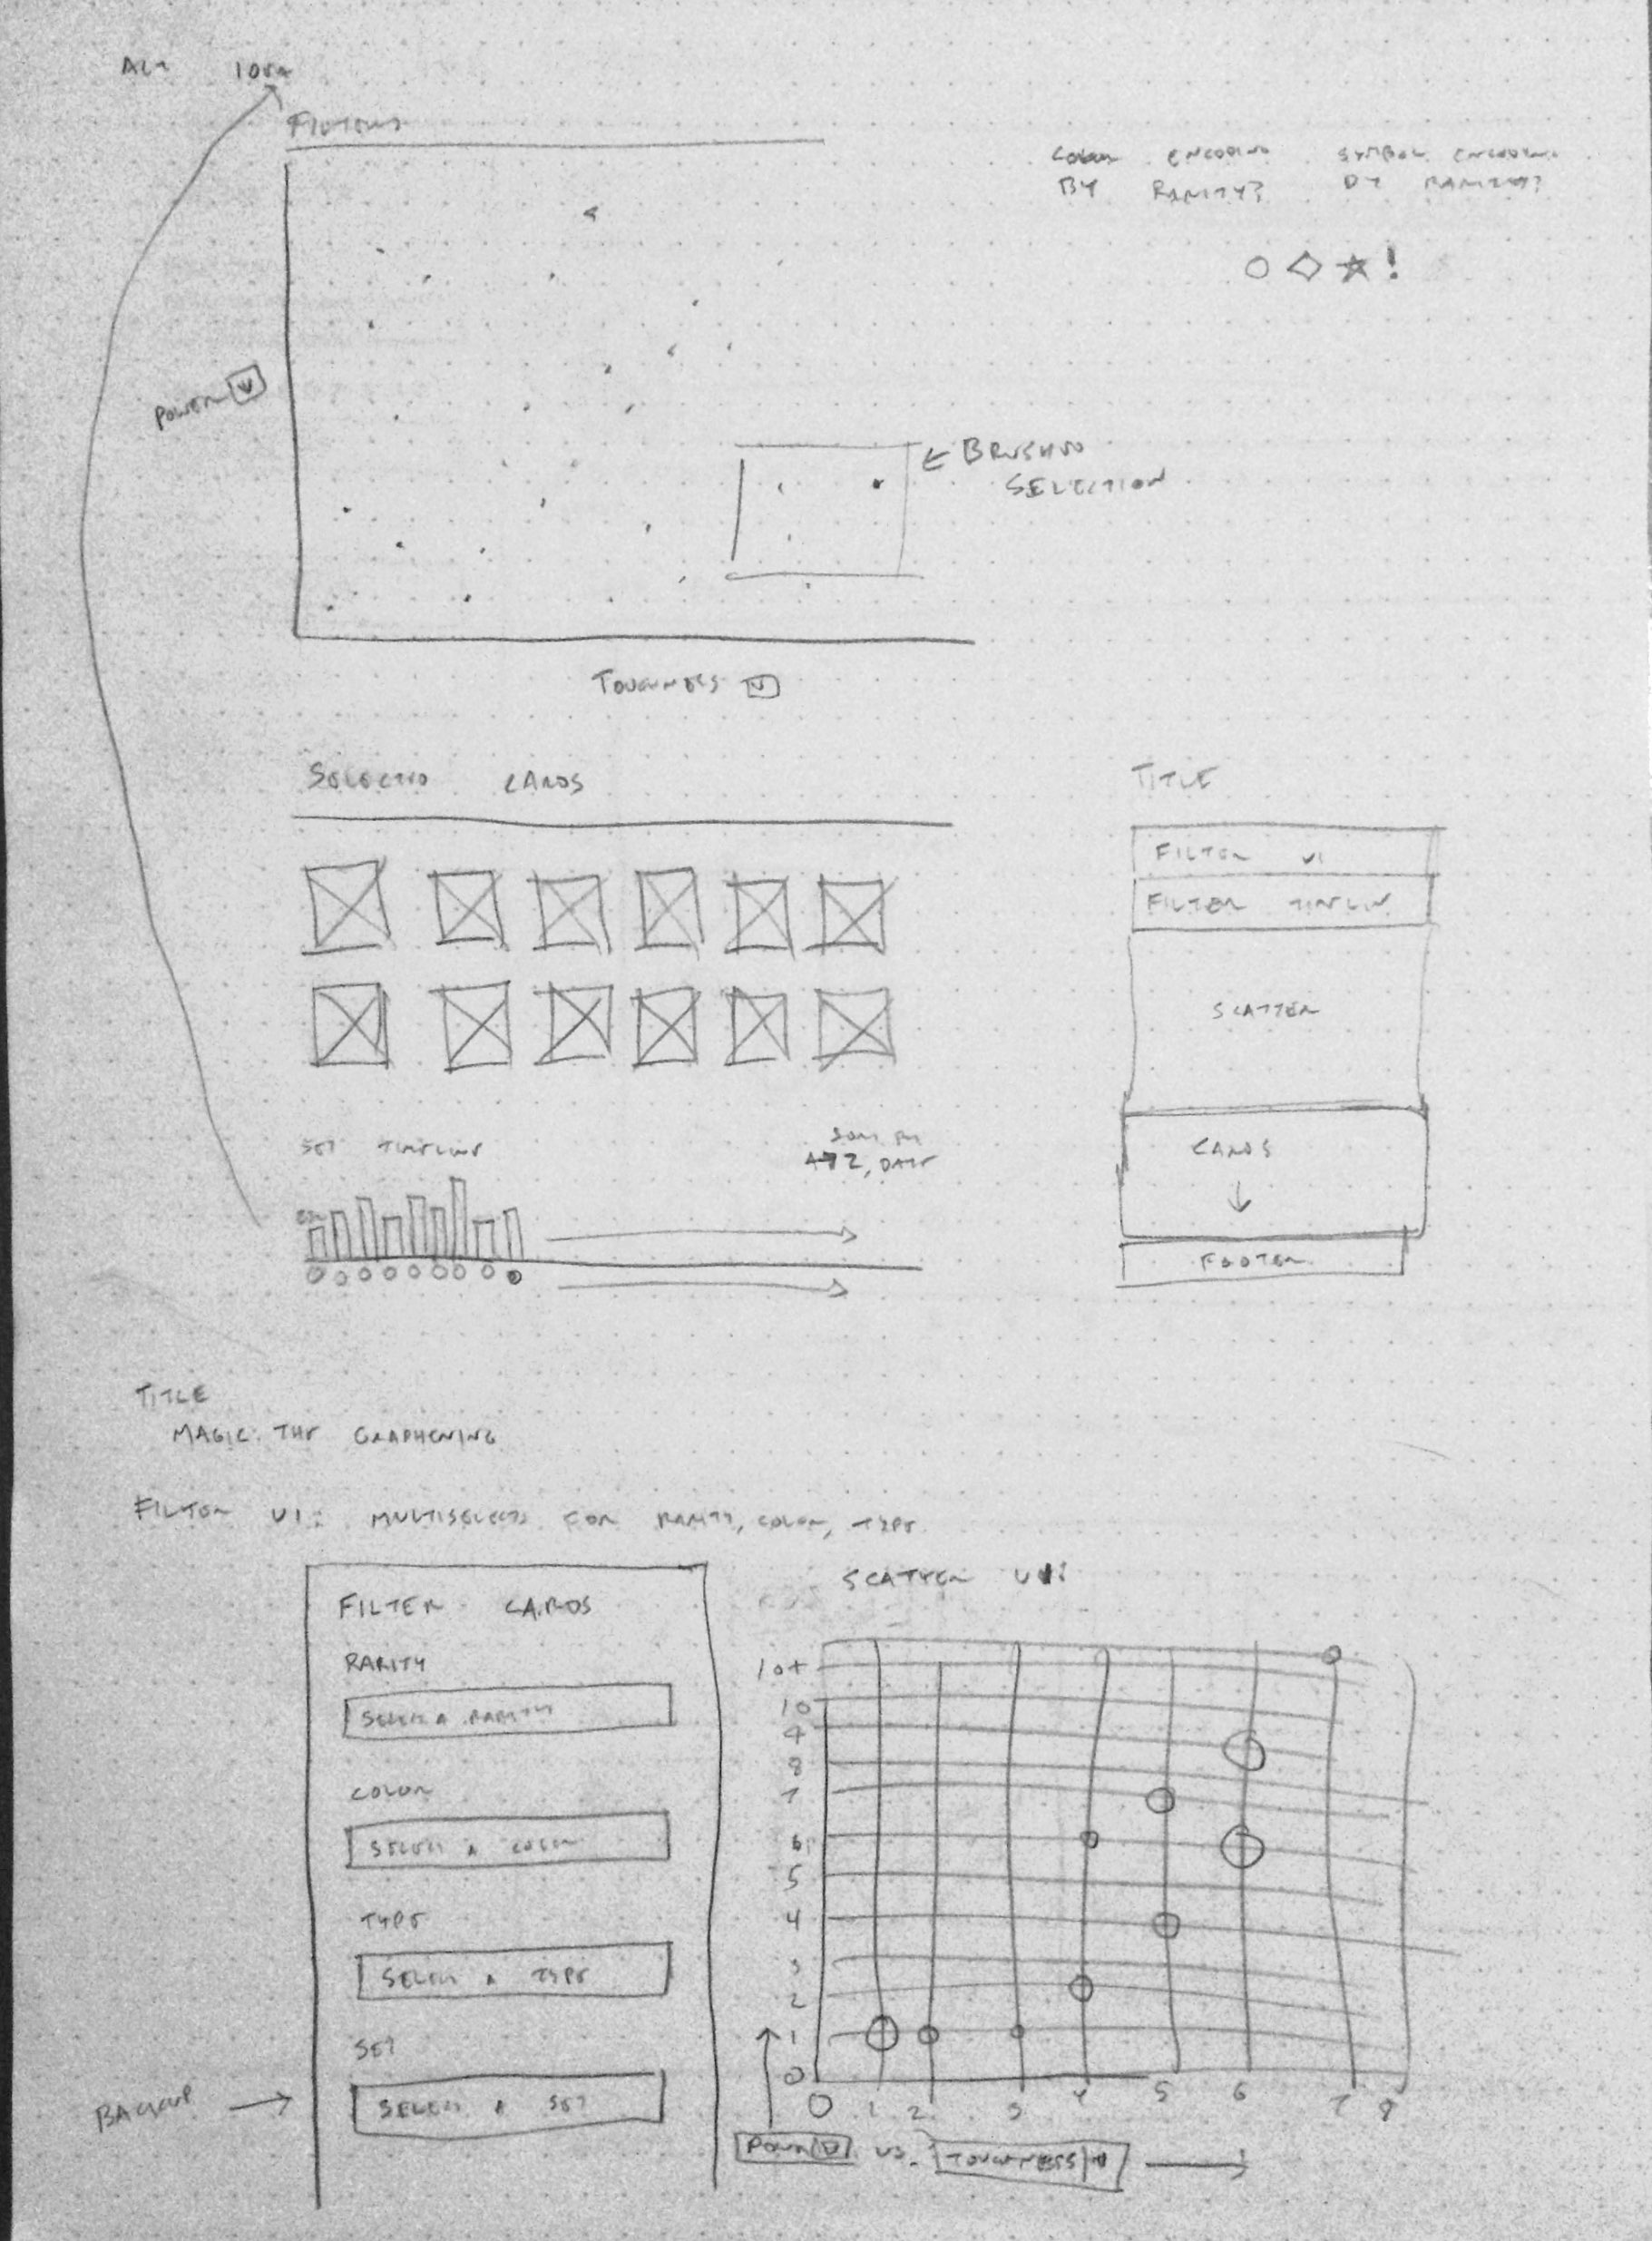 ALT IDEA
FILTERS
COLOR ENCODING
BY RARITY?
SYMBOL ENCODING
BY RARITY?
!
POWER
← BRUSHED
SELECTION
TOUGHNESS
SELECTED CARDS
TITLE
FILTER UI
FILTER TIMELINE
SCATTER
CARDS
FOOTER
SET TIMELINE
SORT BY
A→Z, DATE
TITLE
MAGIC: THE GRAPHENING
FILTER UI: MULTISELECTS FOR RARITY, COLOR, TYPE
FILTER CARDS
RARITY
SELECT A RARITY
COLOR
SELECT A COLOR
TYPE
SELECT A TYPE
SET
SELECT A SET
BACKUP →
SCATTER UI:
10+
10
9
8
7
6
5
4
3
2
1
0
0 1 2 3 4 5 6 7 8
POWER VS. TOUGHNESS